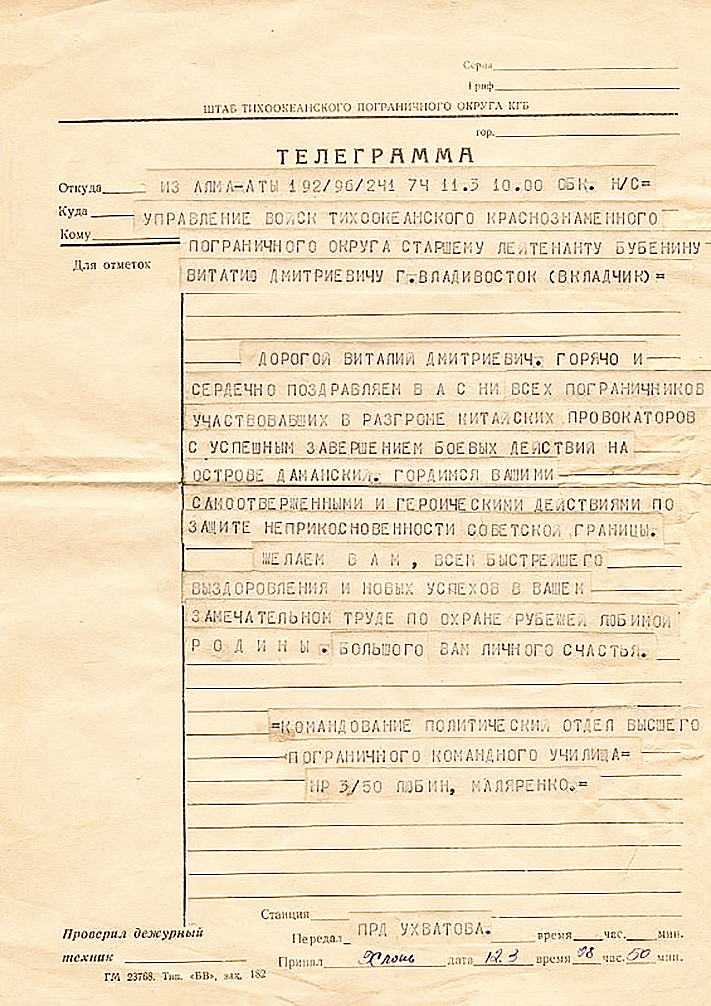 Серия
Гриф
ШТАБ ТИХООКЕАНСКОГО ПОГРАНИЧНОГО ОКРУГА КГБ
гор.
ТЕЛЕГРАММА
Откуда ИЗ АЛМА-АТЫ 192/96/241 74 11.3 10.00 ОБК. Н/С=
Куда УПРАВЛЕНИЕ ВОЙСК ТИХООКЕАНСКОГО КРАСНОЗНАМЕННОГО
Кому ПОГРАНИЧНОГО ОКРУГА СТАРШЕМУ ЛЕЙТЕНАНТУ БУБЕНИНУ
Для отметок ВИТАТИЮ ДМИТРИЕВИЧУ Г.ВЛАДИВОСТОК (ВКЛАДЧИК)=
ДОРОГОЙ ВИТАЛИЙ ДМИТРИЕВИЧ. ГОРЯЧО И
СЕРДЕЧНО ПОЗДРАВЛЯЕМ В А С НИ ВСЕХ ПОГРАНИЧНИКОВ
УЧАСТВОВАВШИХ В РАЗГРОМЕ КИТАЙСКИХ ПРОВОКАТОРОВ
С УСПЕШНЫМ ЗАВЕРШЕНИЕМ БОЕВЫХ ДЕЙСТВИЙ НА
ОСТРОВЕ ДАМАНСКИЙ. ГОРДИМСЯ ВАШИМИ
САМООТВЕРЖЕННЫМИ И ГЕРОИЧЕСКИМИ ДЕЙСТВИЯМИ ПО
ЗАЩИТЕ НЕПРИКОСНОВЕННОСТИ СОВЕТСКОЙ ГРАНИЦЫ.
ЖЕЛАЕМ В А М , ВСЕМ БЫСТРЕЙШЕГО
ВЫЗДОРОВЛЕНИЯ И НОВЫХ УСПЕХОВ В ВАШЕМ
ЗАМЕЧАТЕЛЬНОМ ТРУДЕ ПО ОХРАНЕ РУБЕЖЕЙ ЛЮБИМОЙ
Р О Д И Н Ы . БОЛЬШОГО ВАМ ЛИЧНОГО СЧАСТЬЯ.
=КОМАНДОВАНИЕ ПОЛИТИЧЕСКИЙ ОТДЕЛ ВЫСШЕГО
ПОГРАНИЧНОГО КОМАНДНОГО УЧИЛИЩА=
НР 3/50 ЛЮБИН, МАЛЯРЕНКО.=
Станция
Проверил дежурный Передал ПРД УХВАТОВА. время час. мин.
техник Принял дата 12.3 время 08 час. 50 мин.
ГМ 23768. Тип. «БВ», зак. 182